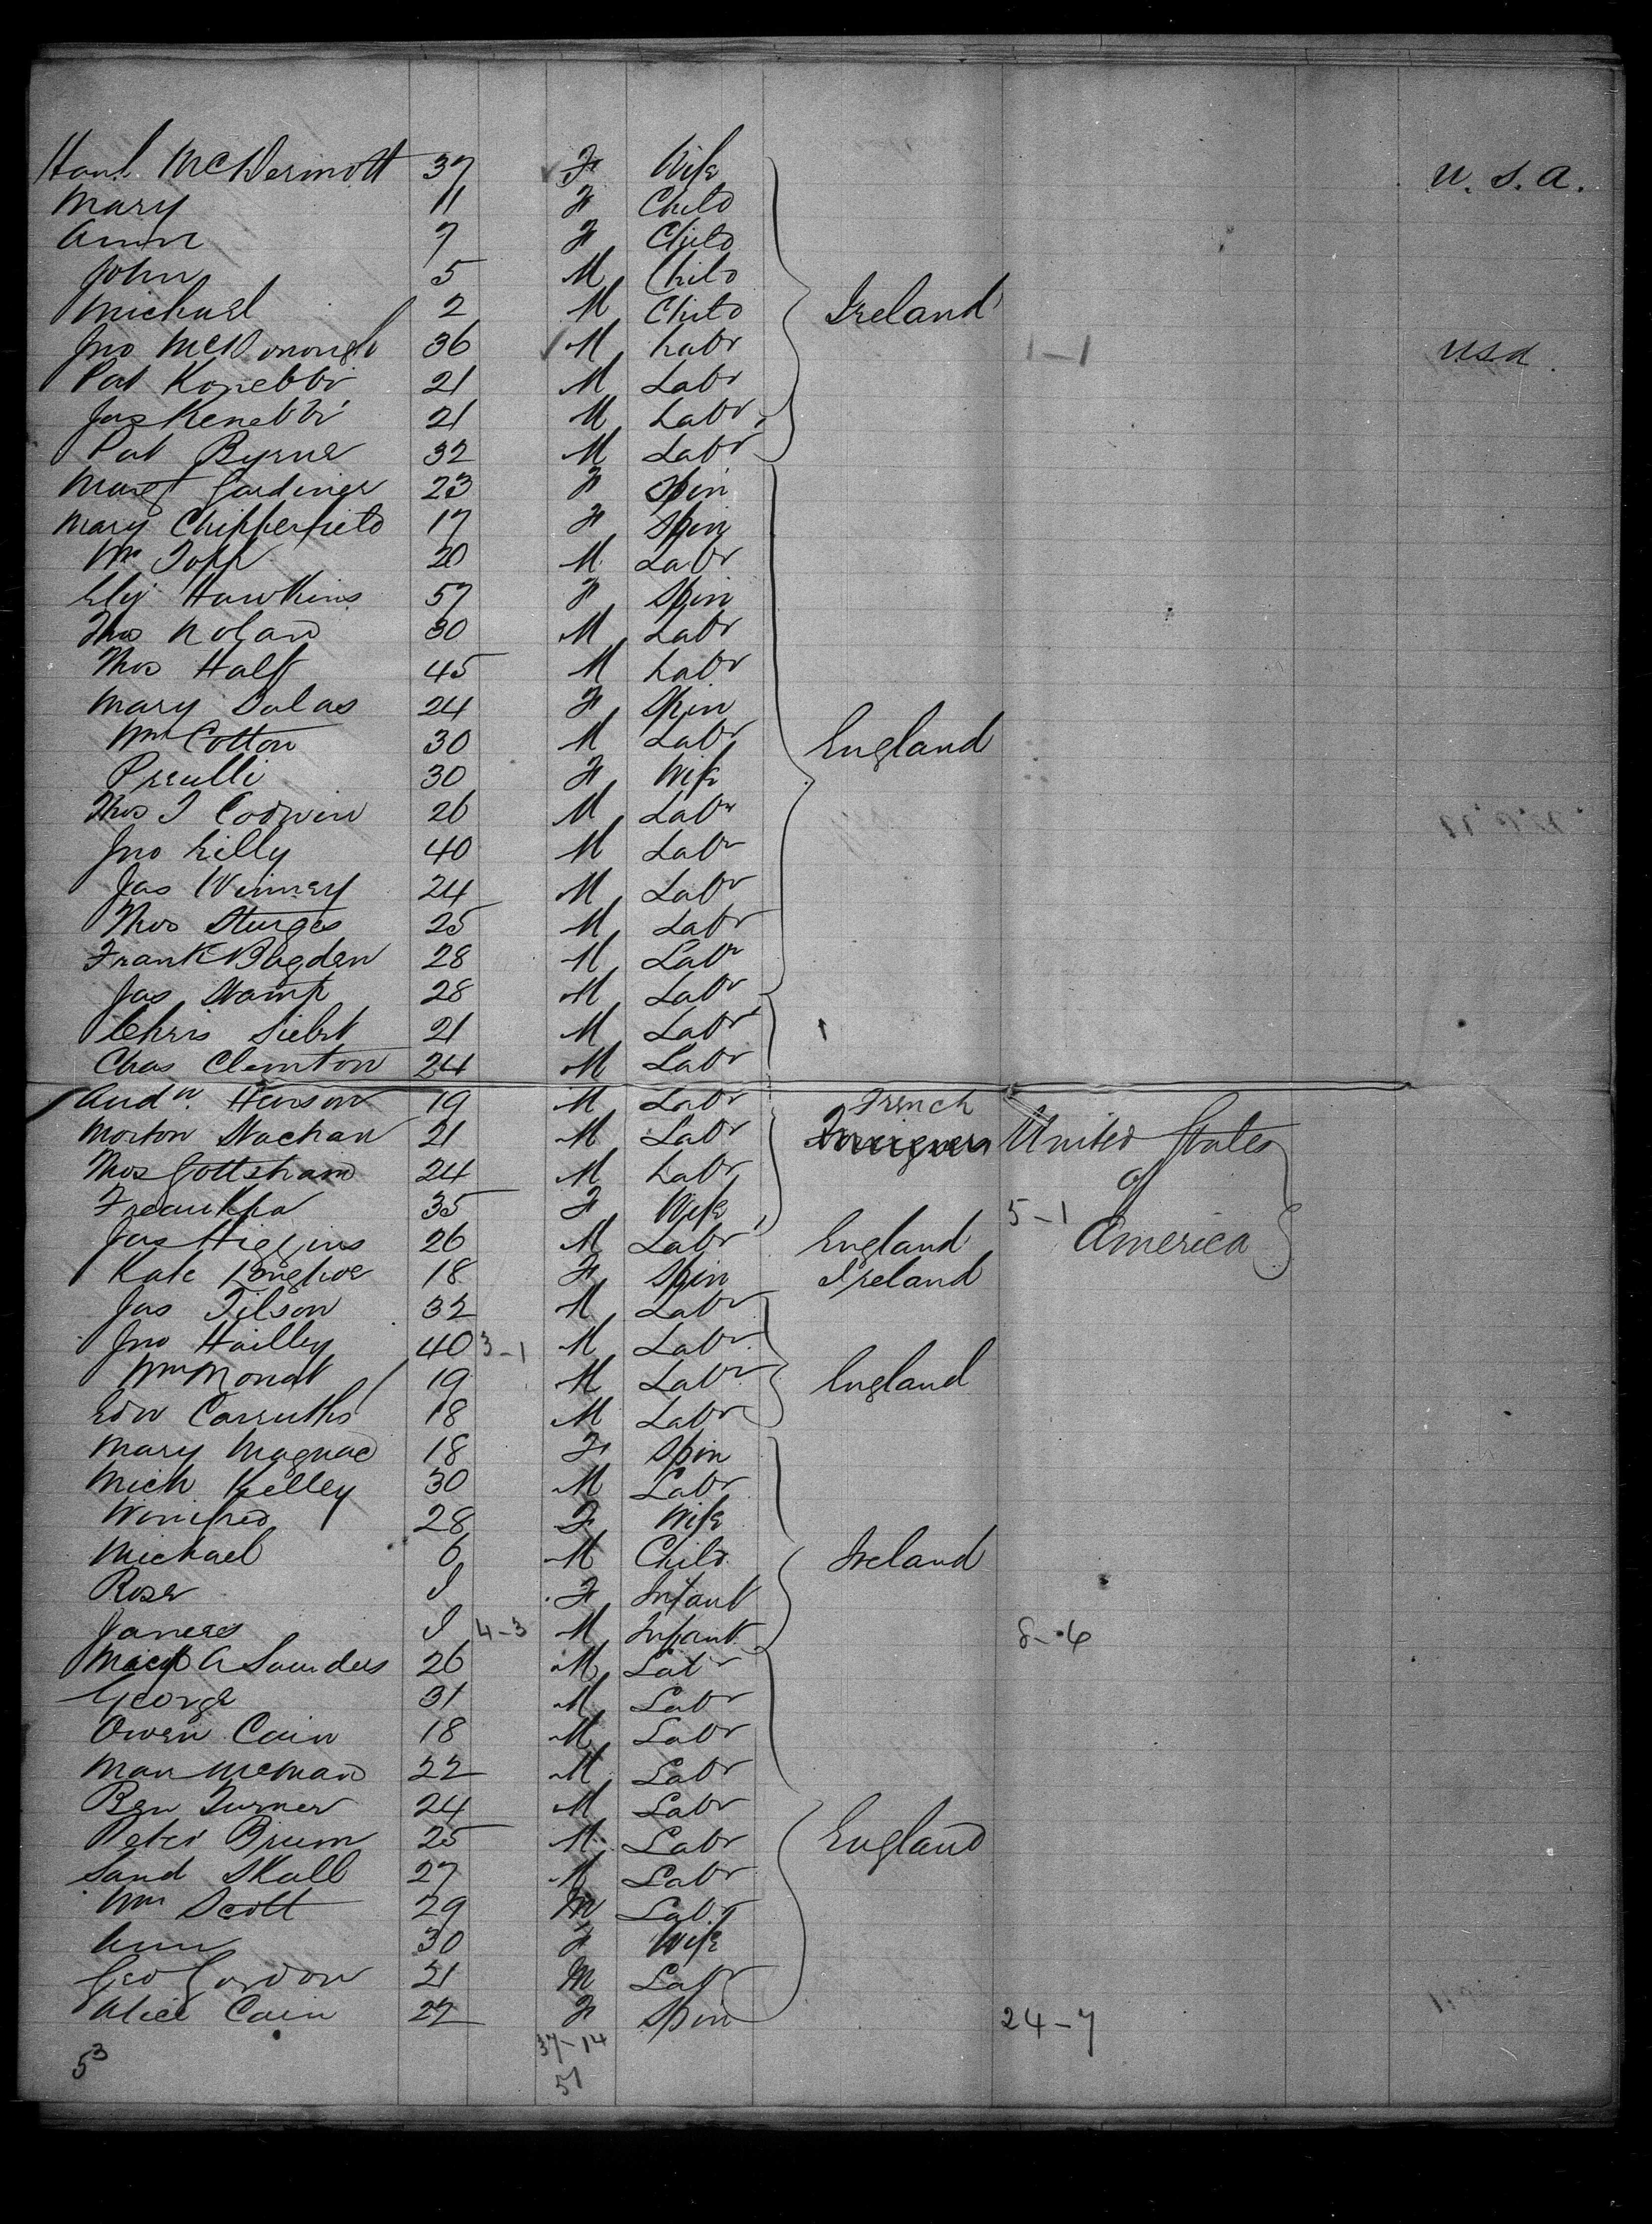 McDermott 37 F Wife U. S. A.
Mary 11 F Child
Ann 7 F Child
John 5 M Child
Michael 2 M Child Ireland
Jno McDonough 36 M Labr 1-1 USA
Pat 21 M Labr
Jas 21 M Labr
Pat Byrne 32 M Labr
Margt Gardiner 23 F Spin
Mary Chipperfield 17 F Spin
Wm Topp 20 M Labr
Eliz Hawkins 57 F Spin
Thos Nolan 30 M Labr
Thos Halt 45 M Labr
Mary Dalas 24 F Spin
Wm Cotton 30 M Labr England
30 F Wife
Thos J 26 M Labr
Jno Lilly 40 M Labr
Jas 24 M Labr
Thos Sturges 25 M Labr
Frank Bagden 28 M Labr
Jas Stamp 28 M Labr
Chris Siebt 21 M Labr
Chas Clemton 24 M Labr
Andw. 19 M Labr French
Morton Strachan 21 M Labr United States
Thos 24 M Labr of
35 F Wife 5-1
Jas Higgins 26 M Labr England America
Kate 18 F Spin Ireland
Jas Tilson 32 M Labr
Jno Hailley 40 3-1 M Labr
Wm 19 M Labr England
Edw Carruths 18 M Labr
Mary 18 F Spin
Mich Kelley 30 M Labr
Winifred 28 F Wife
Michael 6 M Child Ireland
Rose I F Infant
James I 4-3 M Infant 8-6
A Saunders 26 M Labr
George 31 M Labr
Owen Cain 18 M Labr
22 M Labr
Ben Turner 24 M Labr
Peter 25 M Labr England
Sand Skall 27 M Labr
Wm Scott 29 M Labr
Ann 30 F Wife
Geo Gordon 21 M Labr
Alice Cain 22 F Spin 24-7
53 37-14
51